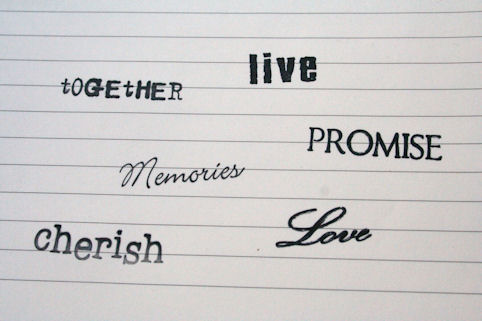 live
tOGEtHER
PROMISE
Memories
Love
cherish